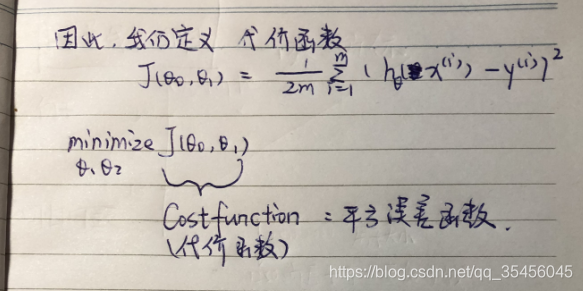 因此，我们定义 代价函数
J(θ₀,θ₁) = 1/2m ∑ᵢ₌₁ᵐ (hθ(x⁽ⁱ⁾) - y⁽ⁱ⁾)²
minimize J(θ₀,θ₁)
θ₁θ₂
Cost function = 平方误差函数.
(代价函数)
https://blog.csdn.net/qq_35456045